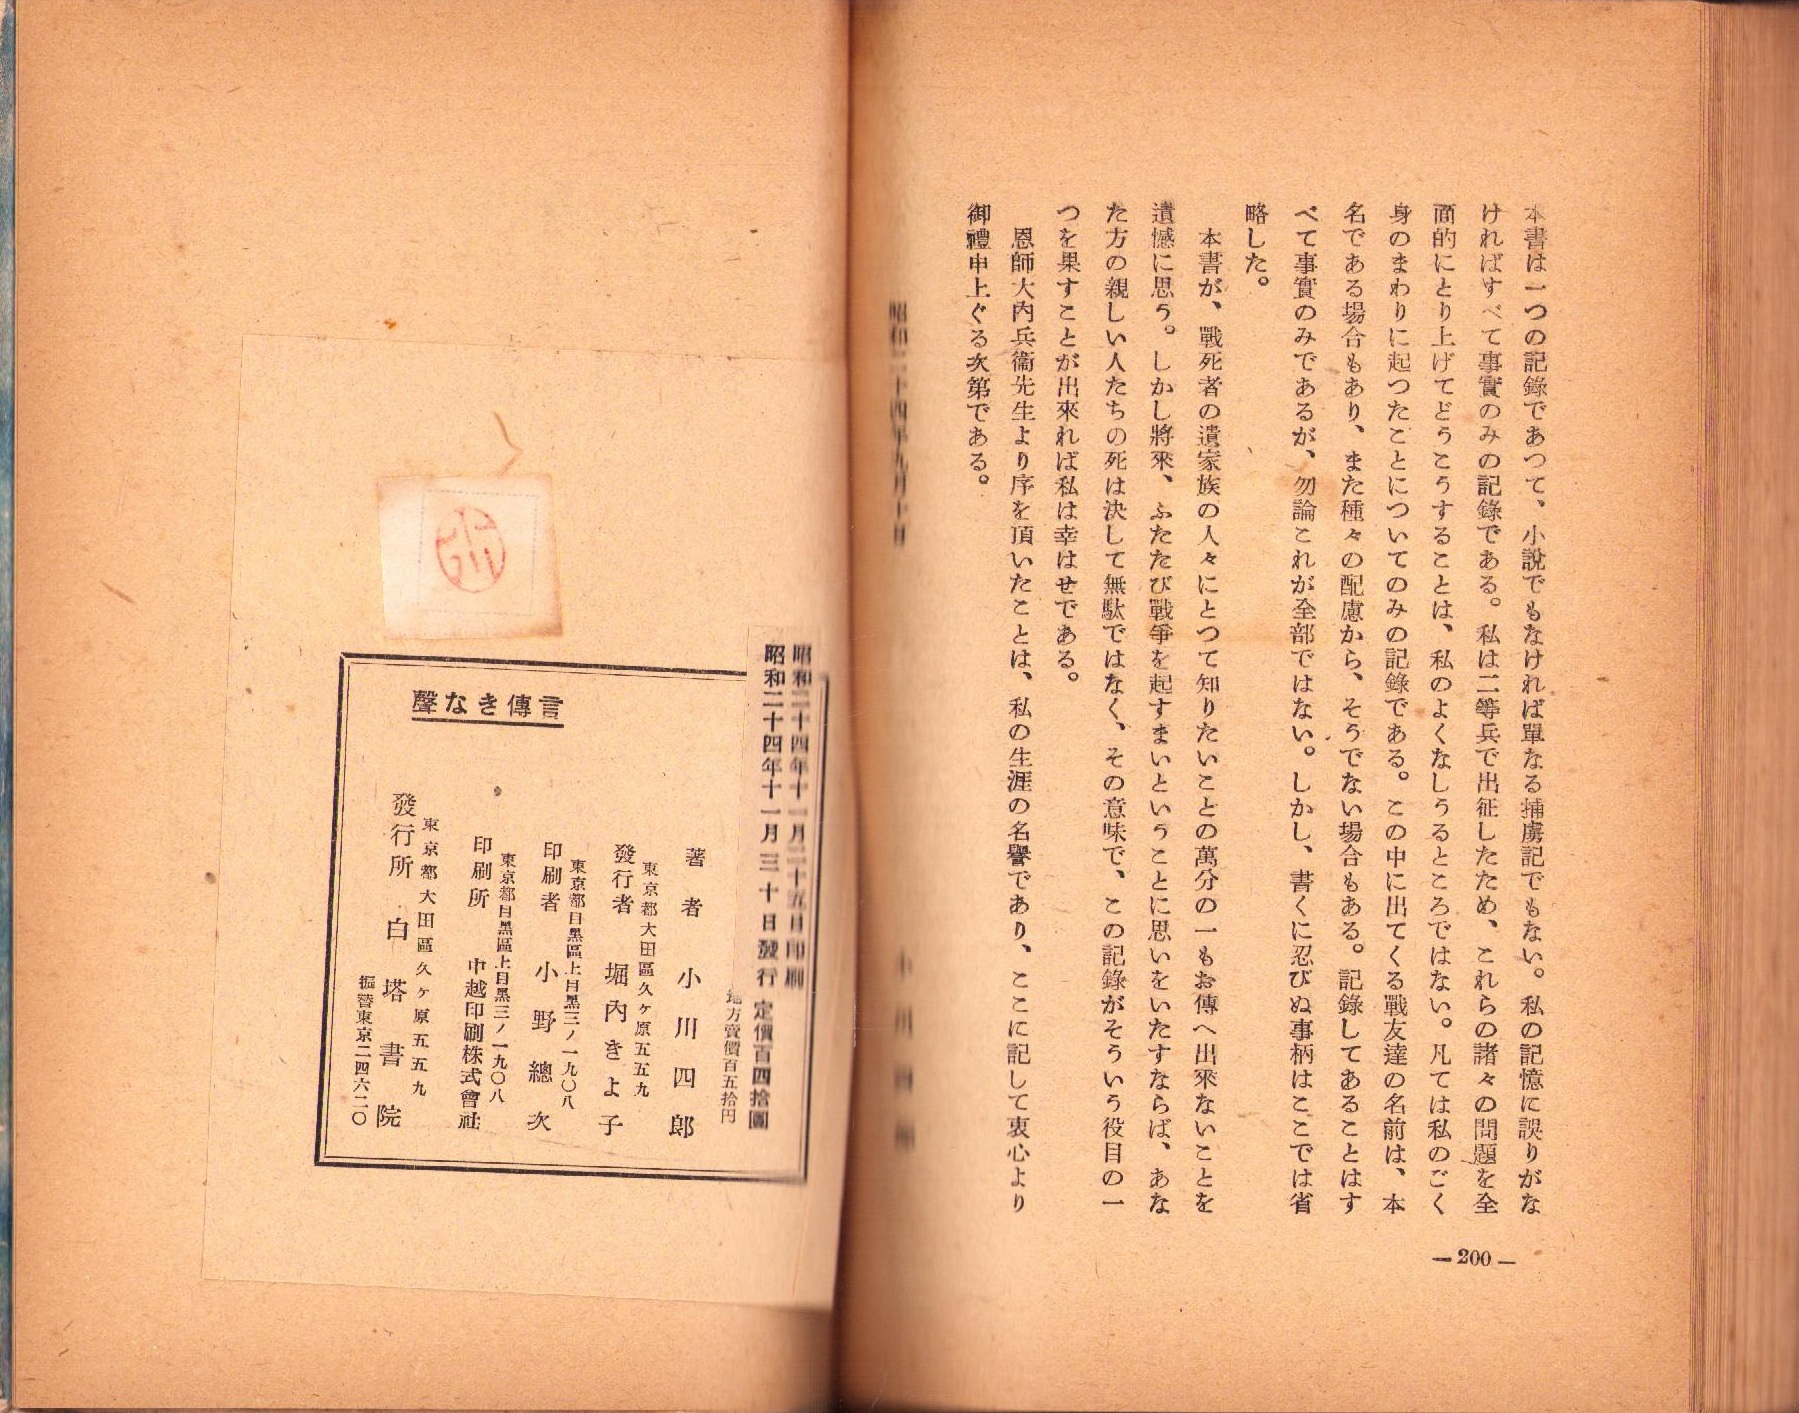 本書は一つの記錄であつて、小説でもなければ單なる捕虜記でもない。私の記憶に誤りがな
ければすべて事實のみの記錄である。私は二等兵で出征したため、これらの諸々の問題を全
面的にとり上げてどうこうすることは、私のよくなしうるところではない。凡ては私のごく
身のまわりに起つたことについてのみの記錄である。この中に出てくる戰友達の名前は、本
名である場合もあり、また種々の配慮から、そうでない場合もある。記錄してあることはす
べて事實のみであるが、勿論これが全部ではない。しかし、書くに忍びぬ事柄はここでは省
略した。
本書が、戰死者の遺家族の人々にとつて知りたいことの萬分の一もお傳へ出來ないことを
遺憾に思う。しかし將來、ふたたび戰爭を起すまいということに思いをいたすならば、あな
た方の親しい人たちの死は決して無駄ではなく、その意味で、この記錄がそういう役目の一
つを果すことが出來れば私は幸はせである。
恩師大內兵衞先生より序を頂いたことは、私の生涯の名譽であり、ここに記して衷心より
御禮申上ぐる次第である。
昭和二十四年九月十日
小川四郎
―200―
昭和二十四年十一月二十五日印刷
昭和二十四年十一月三十日發行
定價百四拾圓
地方賣價百五拾円
聲なき傳言
著者 小川四郎
東京都大田區久ヶ原五五九
發行者 堀內きよ子
東京都目黑區上目黑三ノ一九〇八
印刷者 小野總次
東京都目黑區上目黑三ノ一九〇八
印刷所 中越印刷株式會社
東京都大田區久ヶ原五五九
發行所 白塔書院
振替東京二四六二〇